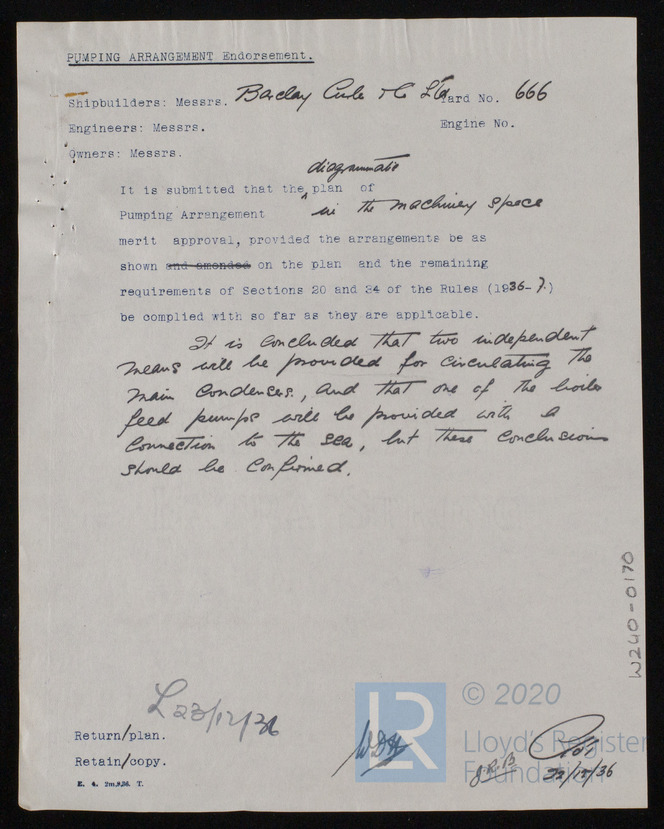 PUMPING ARRANGEMENT Endorsement.
Shipbuilders: Messrs. Barclay Curle & Co Ltd Yard No. 666
Engineers: Messrs. Engine No.
Owners: Messrs.
diagrammatic
It is submitted that the plan of
Pumping Arrangement in the machinery space
merit approval, provided the arrangements be as
shown and amended on the plan and the remaining
requirements of Sections 20 and 24 of the Rules (1936-7.)
be complied with so far as they are applicable.
It is concluded that two independent
means will be provided for circulating the
main condensers, and that one of the boiler
feed pumps will be provided with a
connection to the sea, but these conclusions
should be confirmed.
W240-0170
© 2020
L 23/12/36
Return/plan.
Lloyd's Register
Retain/copy.
J.R.B
Foundation
22/12/36
E. 4. 2m.9.36. T.
LR